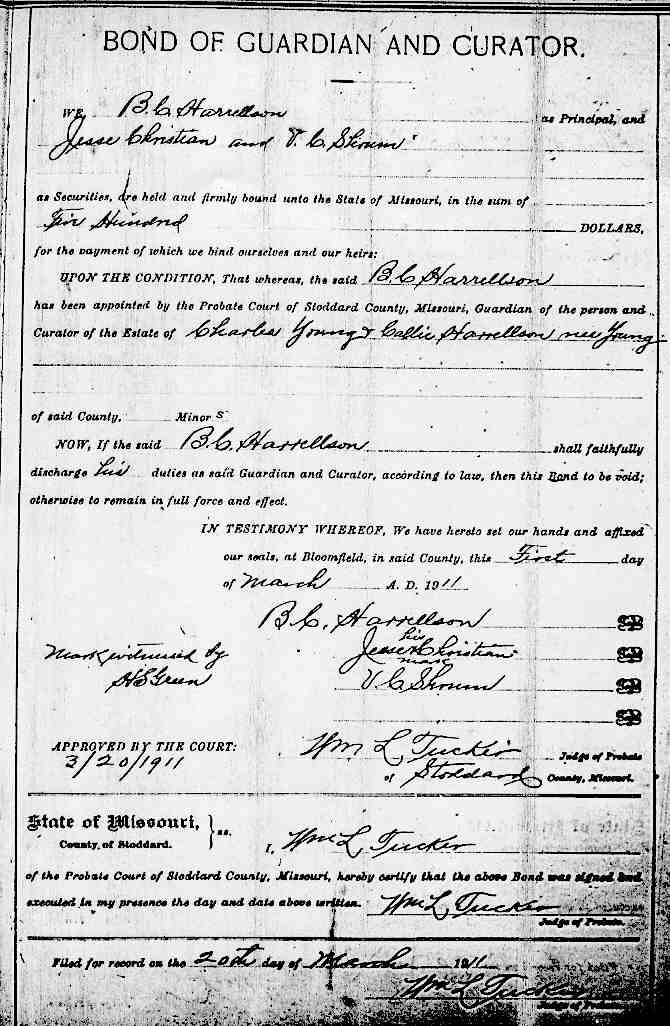 BOND OF GUARDIAN AND CURATOR.
WE, B. C. Harrellson as Principal, and
Jesse Christian and V. C. Shrum
as Securities, are held and firmly bound unto the State of Missouri, in the sum of
Five Hundred DOLLARS,
for the payment of which we bind ourselves and our heirs:
UPON THE CONDITION, That whereas, the said B. C. Harrellson
has been appointed by the Probate Court of Stoddard County, Missouri, Guardian of the person and
Curator of the Estate of Charles Young & Callie Harrellson nee Young
of said County, Minors
NOW, If the said B. C. Harrellson shall faithfully
discharge his duties as said Guardian and Curator, according to law, then this Bond to be void;
otherwise to remain in full force and effect.
IN TESTIMONY WHEREOF, We have hereto set our hands and affixed
our seals, at Bloomfield, in said County, this First day
of March A. D. 1911
B. C. Harrellson
his
Jesse x Christian
mark
Mark witnessed by
H S Green
V C Shrum
APPROVED BY THE COURT:
3/20/1911
Wm L Tucker Judge of Probate
of Stoddard County, Missouri.
State of Missouri,
County, of Stoddard. } ss.
I, Wm L Tucker
of the Probate Court of Stoddard County, Missouri, hereby certify that the above Bond was signed and
executed in my presence the day and date above written. Wm L Tucker
Judge of Probate.
Filed for record on the 20th day of March 1911
Wm L Tucker
Judge of Probate.